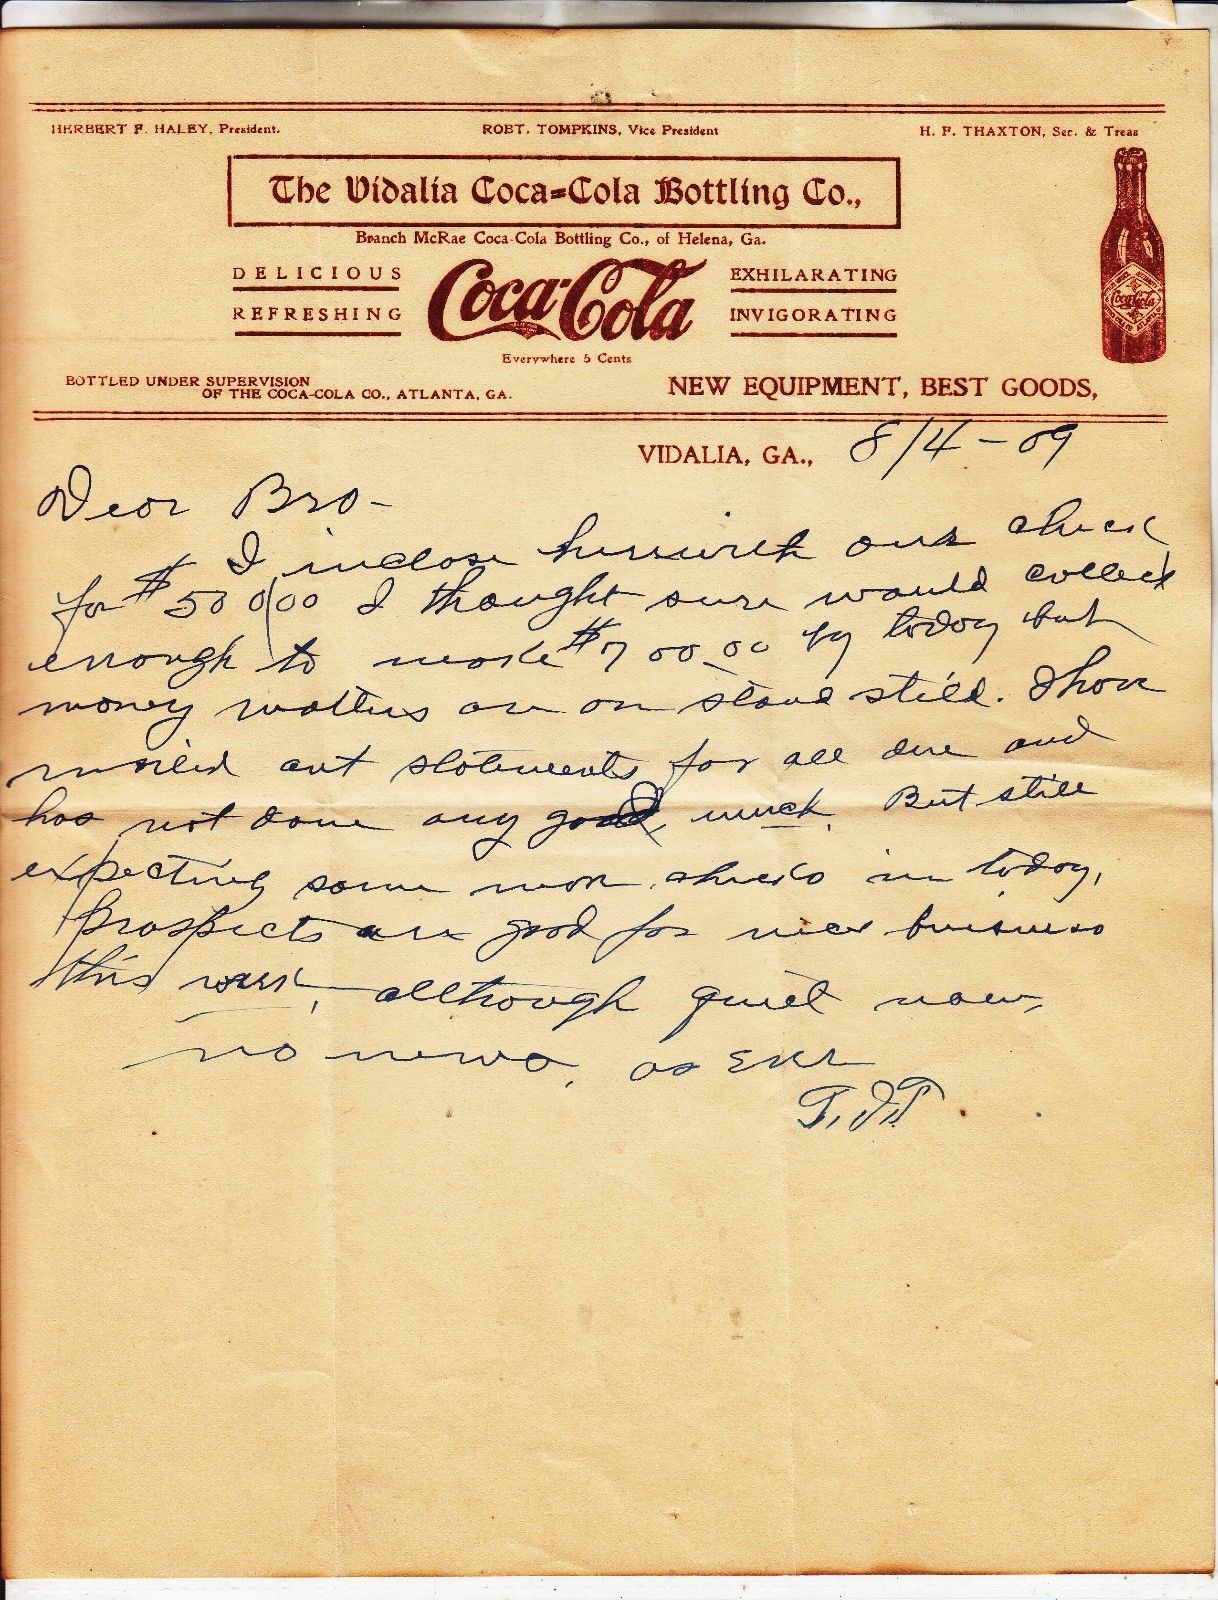 HERBERT F. HALEY, President. ROBT. TOMPKINS, Vice President H. F. THAXTON, Sec. & Treas
The Vidalia Coca=Cola Bottling Co.,
Branch McRae Coca-Cola Bottling Co., of Helena, Ga.
DELICIOUS Coca-Cola EXHILARATING
REFRESHING INVIGORATING
Everywhere 5 Cents
Coca-Cola
BOTTLED UNDER SUPERVISION
OF THE COCA-COLA CO., ATLANTA, GA.
NEW EQUIPMENT, BEST GOODS,
VIDALIA, GA., 8/4-09
Dear Bro-
I inclose herewith our check
for $500/00 I thought sure would collect
enough to make $700.00 by today but
money matters are on stand still. I have
mailed out statements for all due and
has not done any good, much. But still
expecting some more checks in today,
Prospects are good for nice business
this week, although quiet now,
no news, as ever